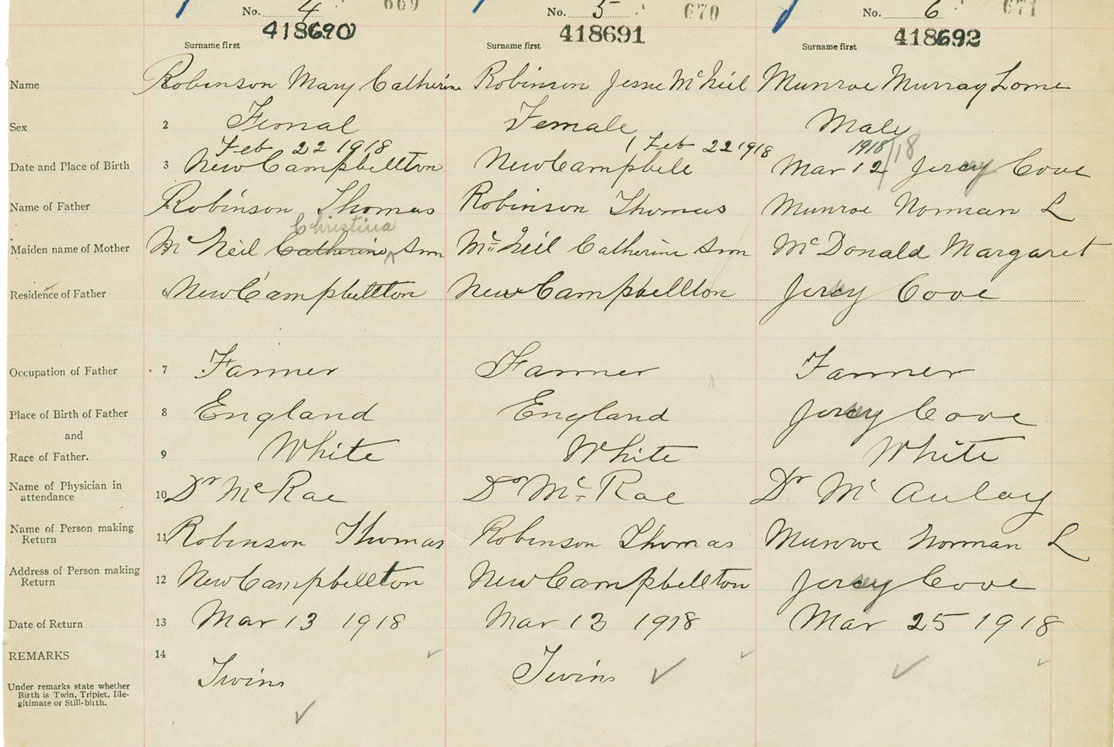 No. 4 669 No. 5 670 No. 6 671
418690 418691 418692
Surname first Surname first Surname first
Name Robinson Mary Catherine Robinson Jessie McNeil Munroe Murray Lorne
Sex 2 Femal Female Male
Feb 22 1918 Feb 22 1918 1918
Date and Place of Birth 3 New Campbellton New Campbele Mar 12/18 Jersey Cove
Name of Father Robinson Thomas Robinson Thomas Munroe Norman L
Christina
Maiden name of Mother McNeil Catherine Ann McNeil Catherine Ann McDonald Margaret
Residence of Father New Campbellton New Campbellton Jersey Cove
Occupation of Father 7 Farmer Farmer Farmer
Place of Birth of Father 8 England England Jersey Cove
and
Race of Father. 9 White White White
Name of Physician in
attendance 10 Dr McRae Dr McRae Dr McAulay
Name of Person making
Return 11 Robinson Thomas Robinson Thomas Munroe Norman L
Address of Person making
Return 12 New Campbellton New Campbellton Jersey Cove
Date of Return 13 Mar 13 1918 Mar 13 1918 Mar 25 1918
REMARKS 14
Twins Twins
Under remarks state whether
Birth is Twin, Triplet, Ille-
gitimate or Still-birth.